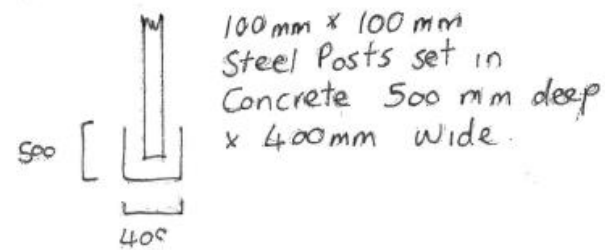 100mm × 100mm
Steel Posts set in
Concrete 500 mm deep
× 400mm Wide.
500
400